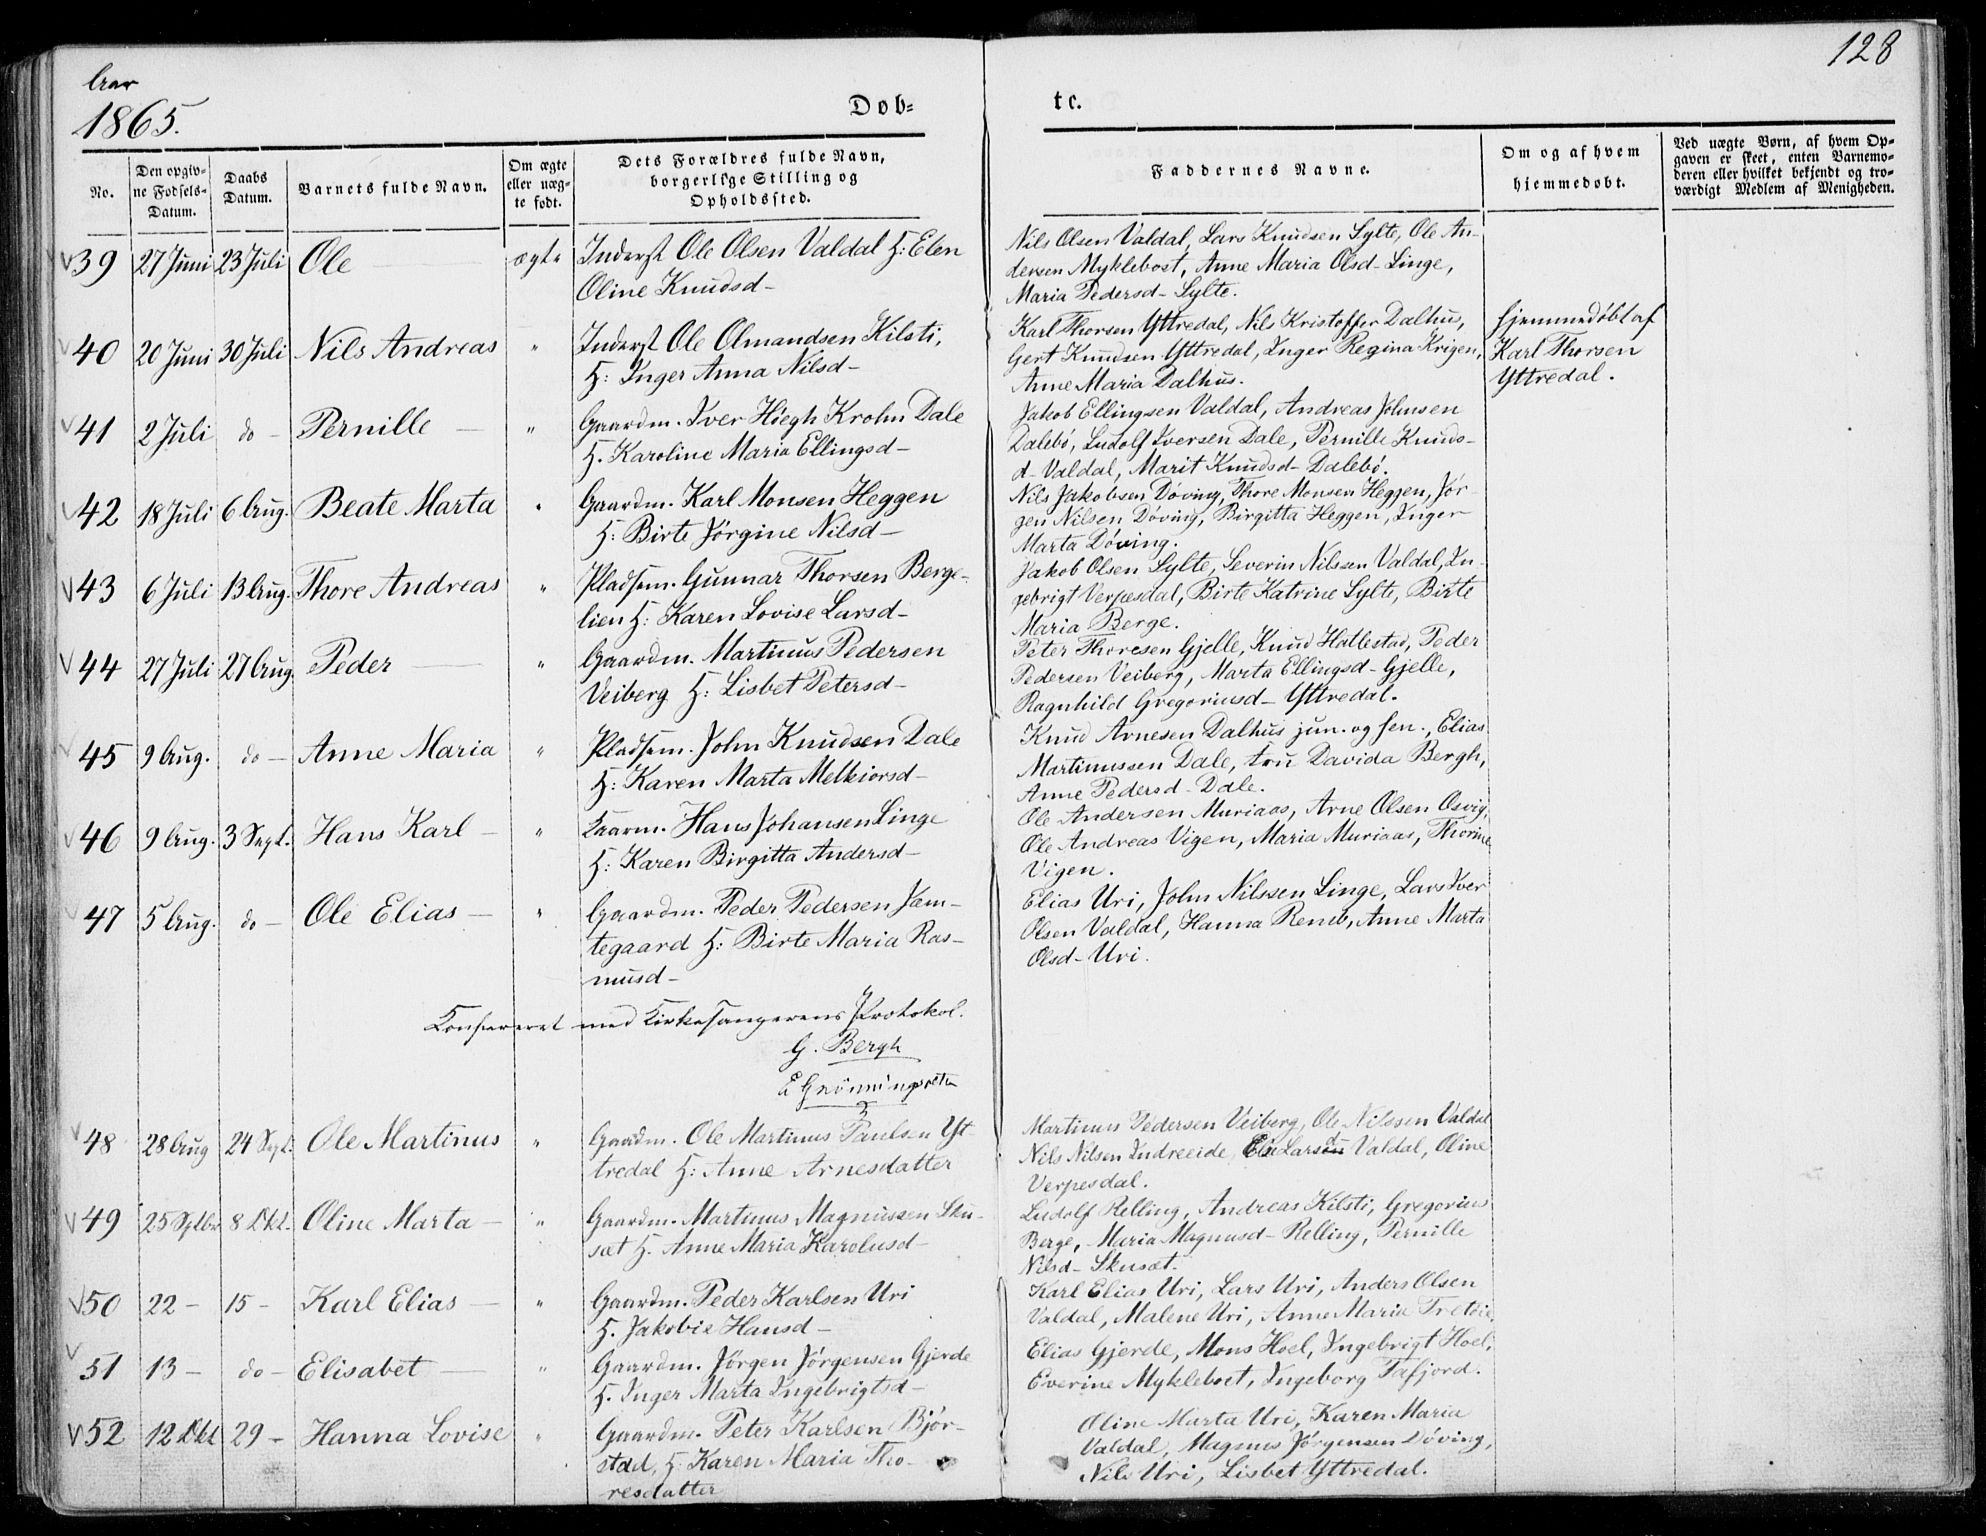 Aar
1865.
128
Døb=
te.
No.
Den opgiv-
ne Fødsels-
Datum.
Daabs
Datum.
Barnets fulde Navn.
Om ægte
eller uæg-
te født.
Dets Forældres fulde Navn,
borgerlige Stilling og
Opholdssted.
Faddernes Navne.
Om og af hvem
hjemmedøbt.
Ved uægte Børn, af hvem Op-
gaven er skeet, enten Barnemo-
deren eller hvilket bekjendt og tro-
værdigt Medlem af Menigheden.
V 39 27 Juni 23 Juli Ole — ægte Inderst Ole Olsen Valdal H: Elen
Oline Knudsd-
Nils Olsen Valdal, Lars Knudsen Sylte, Ole An-
dersen Myklebost, Anne Maria Olsd- Linge,
Maria Pedersd- Sylte.
V 40 20 Juni 30 Juli Nils Andreas " Inderst Ole Olmandsen Kilsti,
H: Inger Anna Nilsd-
Karl Thorsen Yttredal, Nils Kristoffer Dalhus,
Gert Knudsen Yttredal, Inger Regina Krigen,
Anne Maria Dalhus.
hjemmedøbt af
Karl Thorsen
Yttredal.
V 41 2 Juli do - Pernille — " Gaardm. Iver Höegh Krohn Dale
H. Karoline Maria Ellingsd-
Jakob Ellingsen Valdal, Andreas Johnsen
Dalebö, Ludolf Iversen Dale, Pernille Knuds-
d- Valdal, Marit Knudsd- Dalebö.
V 42 18 Juli 6 Aug. Beate Marta " Gaardm. Karl Monsen Heggen
H: Birte Jörgine Nilsd-
Nils Jakobsen Döving, Thore Monsen Heggen, Jör-
gen Nilsen Döving, Birgitta Heggen, Inger
Marta Döving.
V 43 6 Juli 13 Aug. Thore Andreas " Pladsm. Gunnar Thorsen Berge-
lien H: Karen Lovise Larsd-
Jakob Olsen Sylte, Severin Nilsen Valdal, In-
gebrigt Verpesdal, Birte Katrine Sylte, Birte
Maria Berge.
V 44 27 Juli 27 Aug. Peder — " Gaardm. Martinus Pedersen
Veiberg H: Lisbet Petersd-
Peter Thoresen Gjelle, Knud Hallestad, Peder
Pedersen Veiberg, Marta Ellingsd- Gjelle,
Ragnhild Gregoriusd- Yttredal.
V 45 9 Aug. do - Anne Maria " Pladsm. John Knudsen Dale
H: Karen Marta Melkiorsd-
Knud Arnesen Dalhus jun. og sen., Elias
Martinussen Dale, fru Davida Bergh,
Anne Pedersd- Dale.
V 46 9 Aug. 3 Sept. Hans Karl - " Kaarm. Hans Johansen Linge
H: Karen Birgitta Andersd-
Ole Andersen Muriaas, Arne Olsen Osvig,
Ole Andreas Vigen, Maria Muriaas, Thorine
Vigen.
V 47 5 Aug. do - Ole Elias - " Gaardm. Peder Pedersen Jam-
tegaard H: Birte Maria Ras-
musd-
Elias Uri, John Nilssen Linge, Lars Iver
Olsen Valdal, Hanna Reneb, Anne Marta
Olsd- Uri.
Konfereret med Kirkesangerens Protokol.
G. Bergh
E Grönningsæter
V 48 28 Aug 24 Sept. Ole Martinus " Gaardm. Ole Martinus Paulsen Yt
tredal H: Anne Arnesdatter
Martinus Pedersen Veiberg, Ole Nilssen Valdal
Nils Nilsen Indreeide, Eli Larsd Valdal, Oline
Verpesdal.
V 49 25 Septbr 8 Okt. Oline Marta - " Gaardm. Martinus Magnussen Sku-
sæt H. Anne Maria Karolusd-
Ludolf Relling, Andreas Kilsti, Gregorius
Berge, Maria Magnusd- Relling, Pernille
Nilsd- Skusæt.
V 50 22 - 15 - Karl Elias - " Gaardm. Peder Karlsen Uri
H. Jakobie Hansd-
Karl Elias Uri, Lars Uri, Anders Olsen
Valdal, Malene Uri, Anne Maria Tretöie
V 51 13 - do - Elisabet — " Gaardm. Jörgen Jörgensen Gjerde
H. Inger Marta Ingebrigtsd-
Elias Gjerde, Mons Hoel, Ingebrigt Hoel,
Everine Myklebost, Ingeborg Tafjord.
V 52 12 Okt 29 - Hanna Lovise " Gaardm. Peter Karlsen Björ-
stad, H. Karen Maria Tho-
resdatter
Oline Marta Uri, Karen Maria
Valdal, Magnus Jörgensen Döving,
Nils Uri, Lisbet Yttredal.